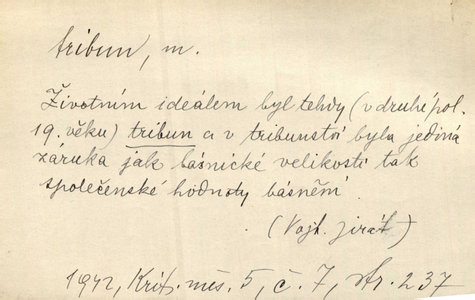 tribun, m.
Životním ideálem byl tehdy (v druhé pol.
19. věku) tribun a v tribunství byla jediná
záruka jak básnické velikosti tak
společenské hodnoty básnění.
(Vojt. Jirát)
1942, Krit. měs. 5, č. 7, str. 237